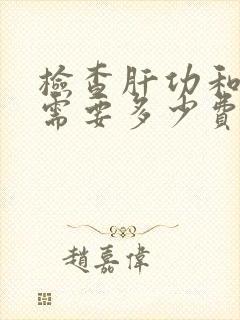 檢查肝功和
需要多少費
趙嘉偉